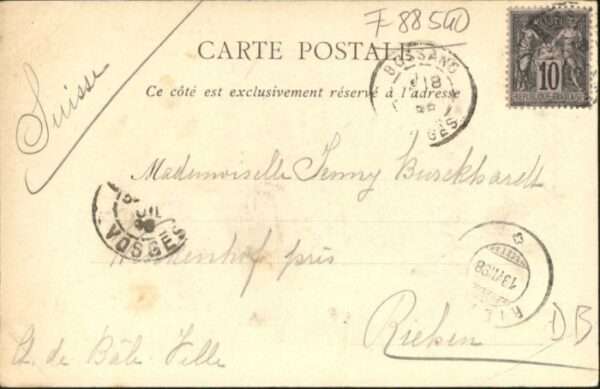 F 88540
CARTE POSTALE
Ce côté est exclusivement réservé à l'adresse
Suisse
BUSSANG
18
VOSGES
10
Mademoiselle Jenny Burckhardt
VOSGES
Wenkenhof près
Riehen
13 VII 98
Ct. de Bâle Ville
DB